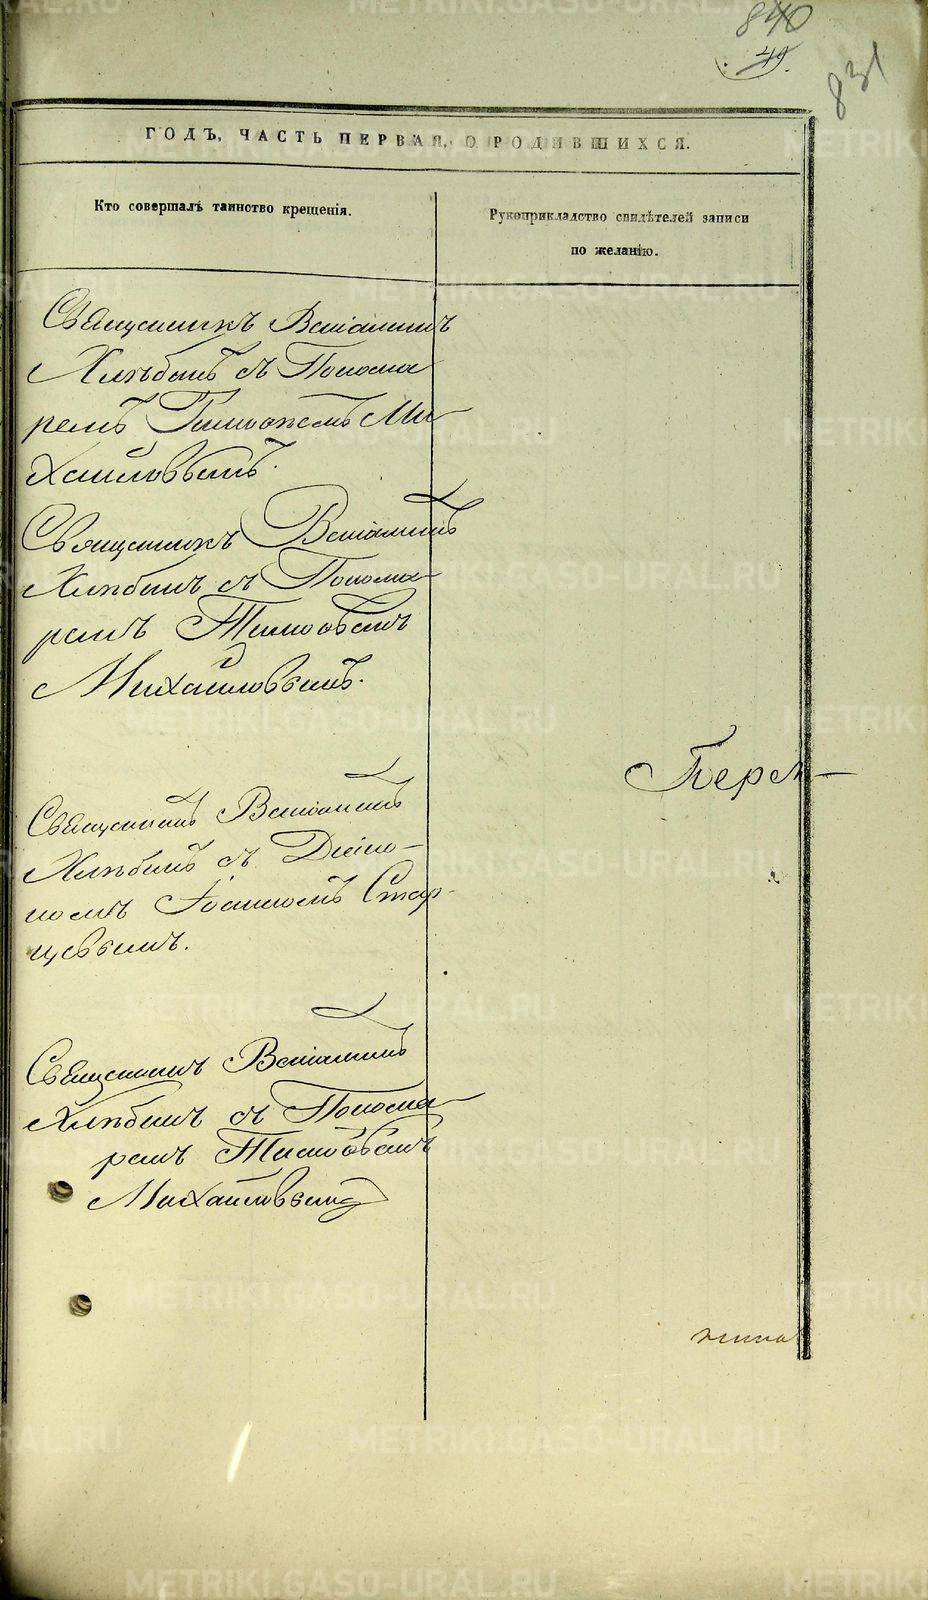 840
49.
831
ГОДЪ, ЧАСТЬ ПЕРВАЯ, О РОДИВШИХСЯ.
Кто совершалъ таинство крещенія.
Рукоприкладство свидѣтелей записи
по желанію.
Священникъ Веніаминъ
Хлѣбинъ съ Понома
ремъ Тимоѳеемъ Ми
хайловымъ.
Священникъ Веніаминъ
Хлѣбинъ съ Понома-
ремъ Тимоѳеемъ
Михайловымъ.
Перм-
Священникъ Веніаминъ
Хлѣбинъ съ Діако-
номъ Іоанномъ Стар-
цевымъ.
Священникъ Веніаминъ
Хлѣбинъ съ Понома-
ремъ Тимоѳеемъ
Михайловымъ
METRIKI.GASO-URAL.RU